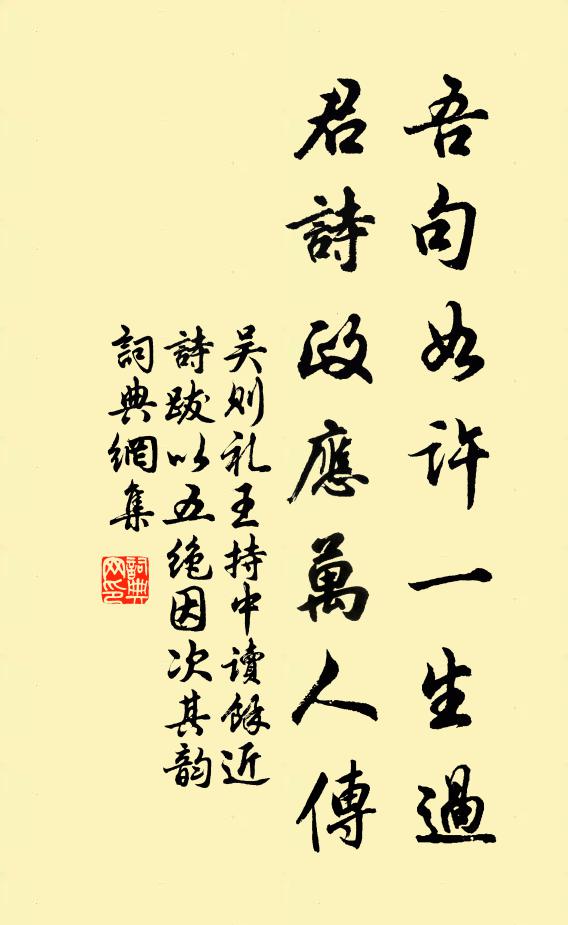 吾句如许一生過
君詩政應萬人傳
吴则礼王持中讀馀近
詩跋以五绝因次其韵
詞典網集
詞典
网印